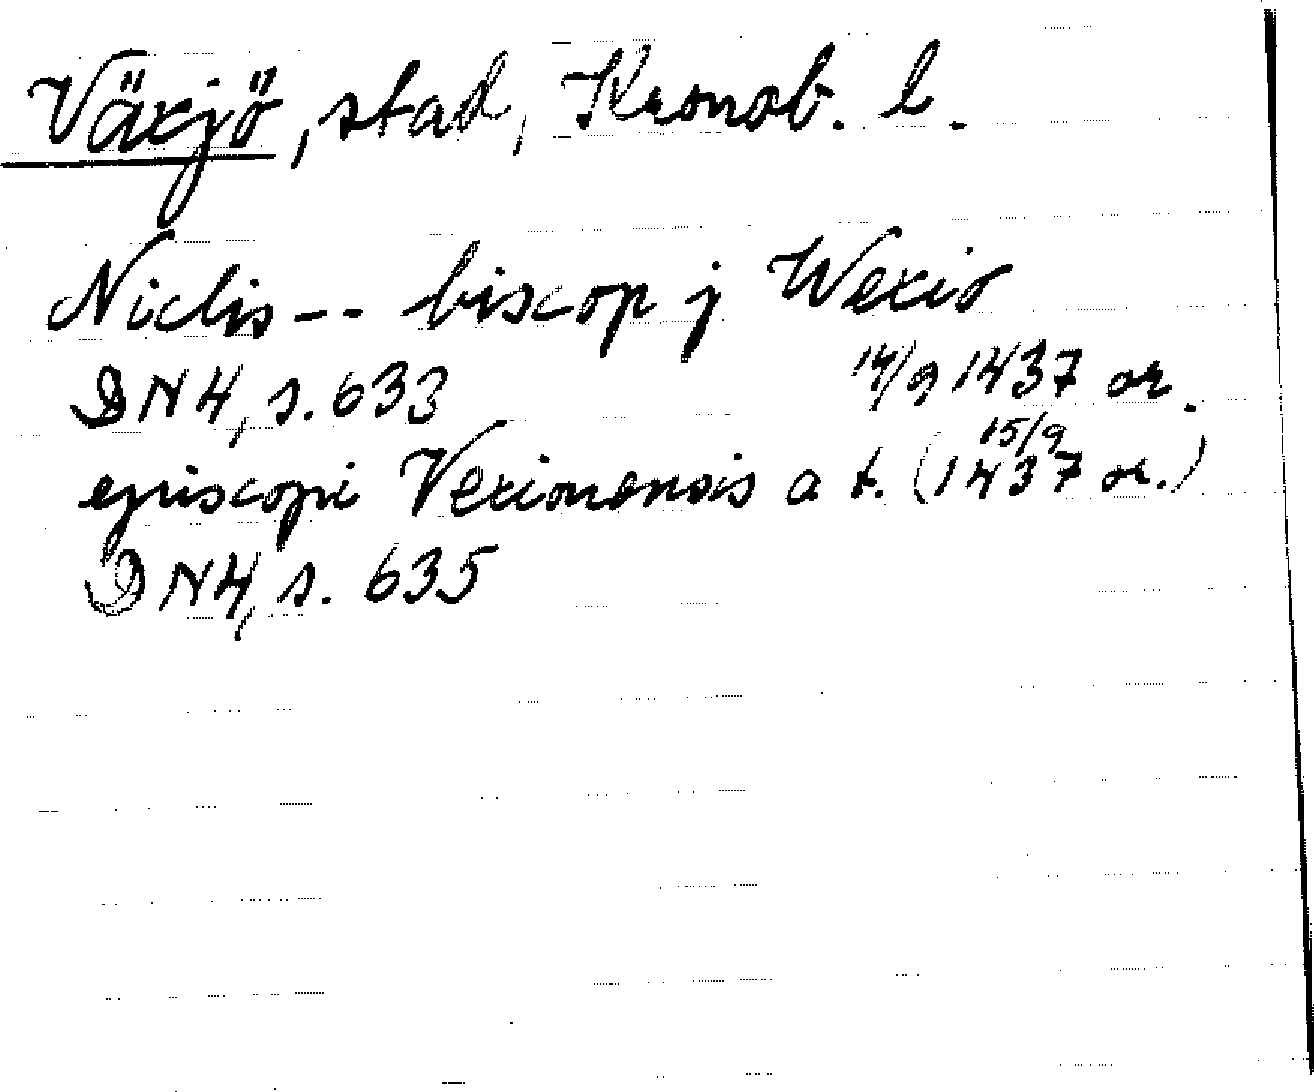 Växjö, stad, Kronob. l.
Niclis -- biscop j Wexio
DN 4, s. 633 14/9 1437 or.
episcopi Vexionensis a t. (15/9 1437 or.)
DN 4, s. 635